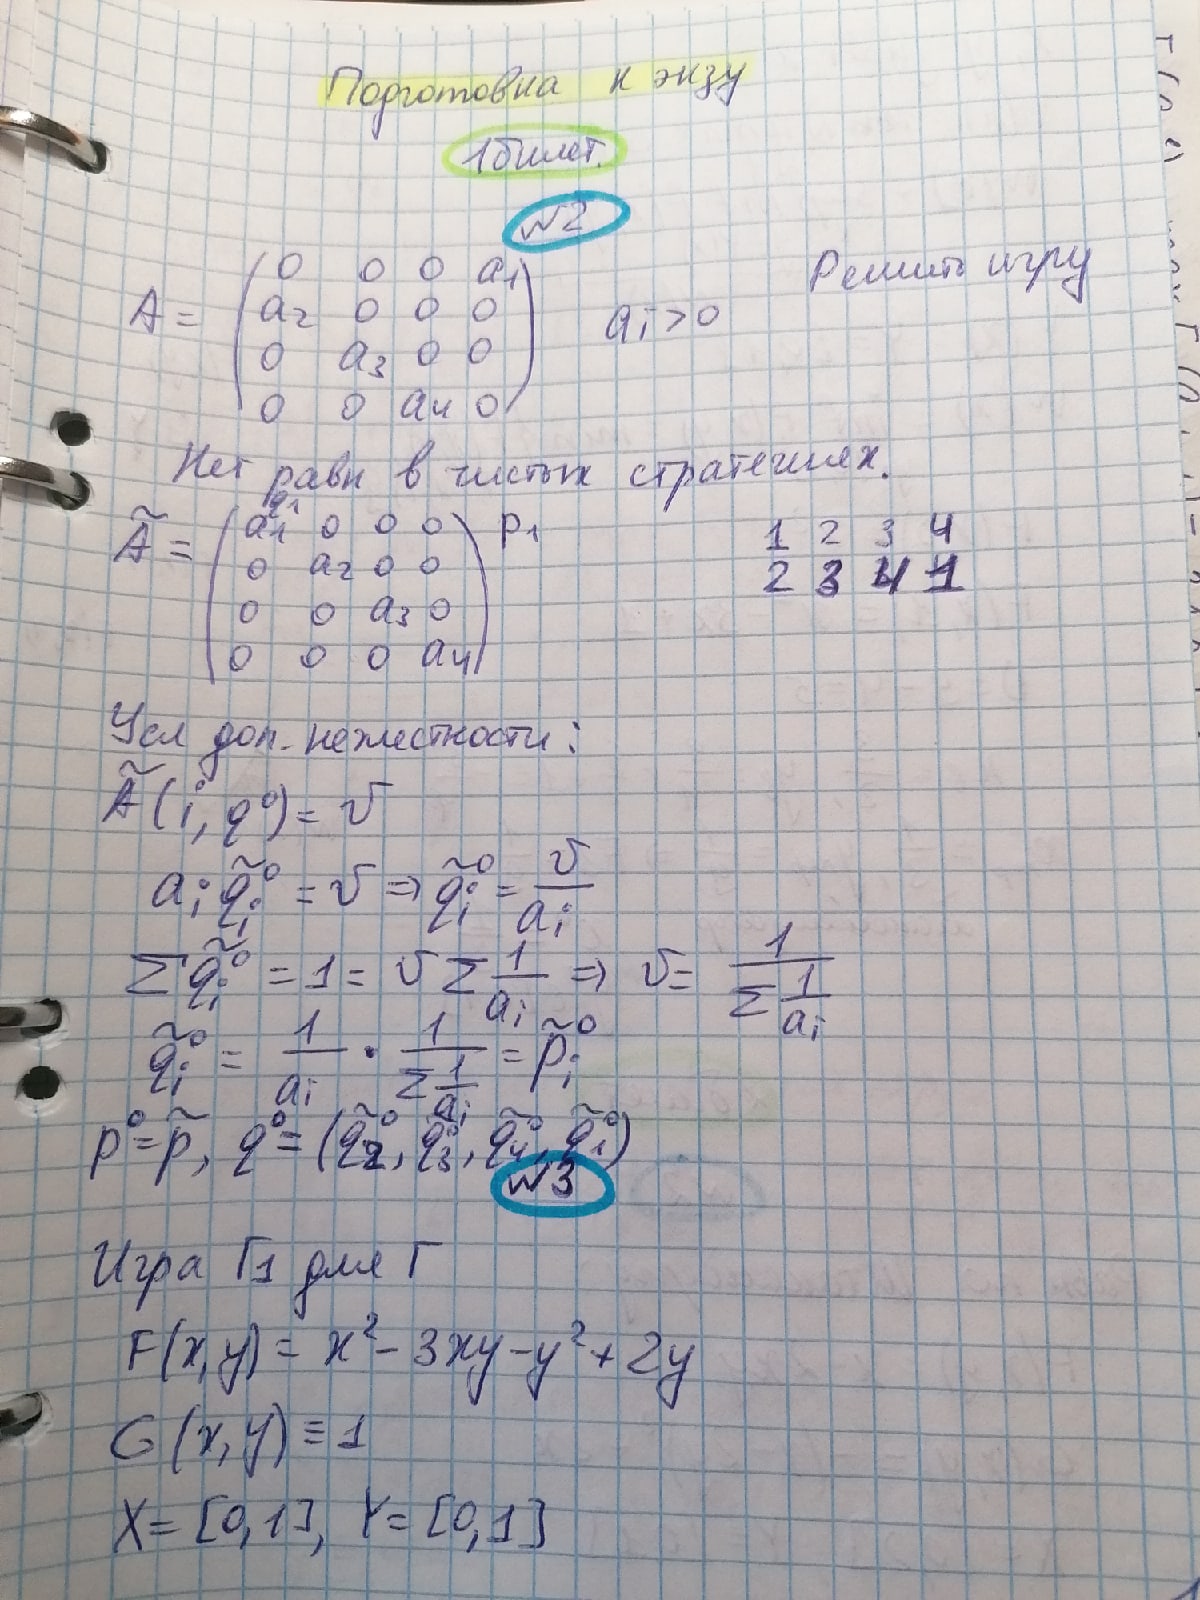 Подготовка к экзу
1 билет.
№2
A = (0 0 0 a₁
a₂ 0 0 0
0 a₃ 0 0
0 0 a₄ 0) aᵢ > 0 Решить игру
Нет равн в чистых стратегиях.
q₁
Ã = (a₁ 0 0 0
0 a₂ 0 0
0 0 a₃ 0
0 0 0 a₄) p₁
1 2 3 4
2 3 4 1
Усл доп. нежесткости:
Ã(i, q⁰) = v
aᵢ q̃ᵢ⁰ = v ⇒ q̃ᵢ⁰ = v/aᵢ
Σ q̃ᵢ⁰ = 1 = v Σ 1/aᵢ ⇒ v = 1/(Σ 1/aᵢ)
q̃ᵢ⁰ = 1/aᵢ · 1/(Σ 1/aᵢ) = p̃ᵢ⁰
p⁰ = p̃, q⁰ = (q̃₂⁰, q̃₃⁰, q̃₄⁰, q̃₁⁰)
№3
Игра Г₁ для Г
F(x,y) = x² - 3xy - y² + 2y
G(x,y) ≡ 1
X = [0,1], Y = [0,1]